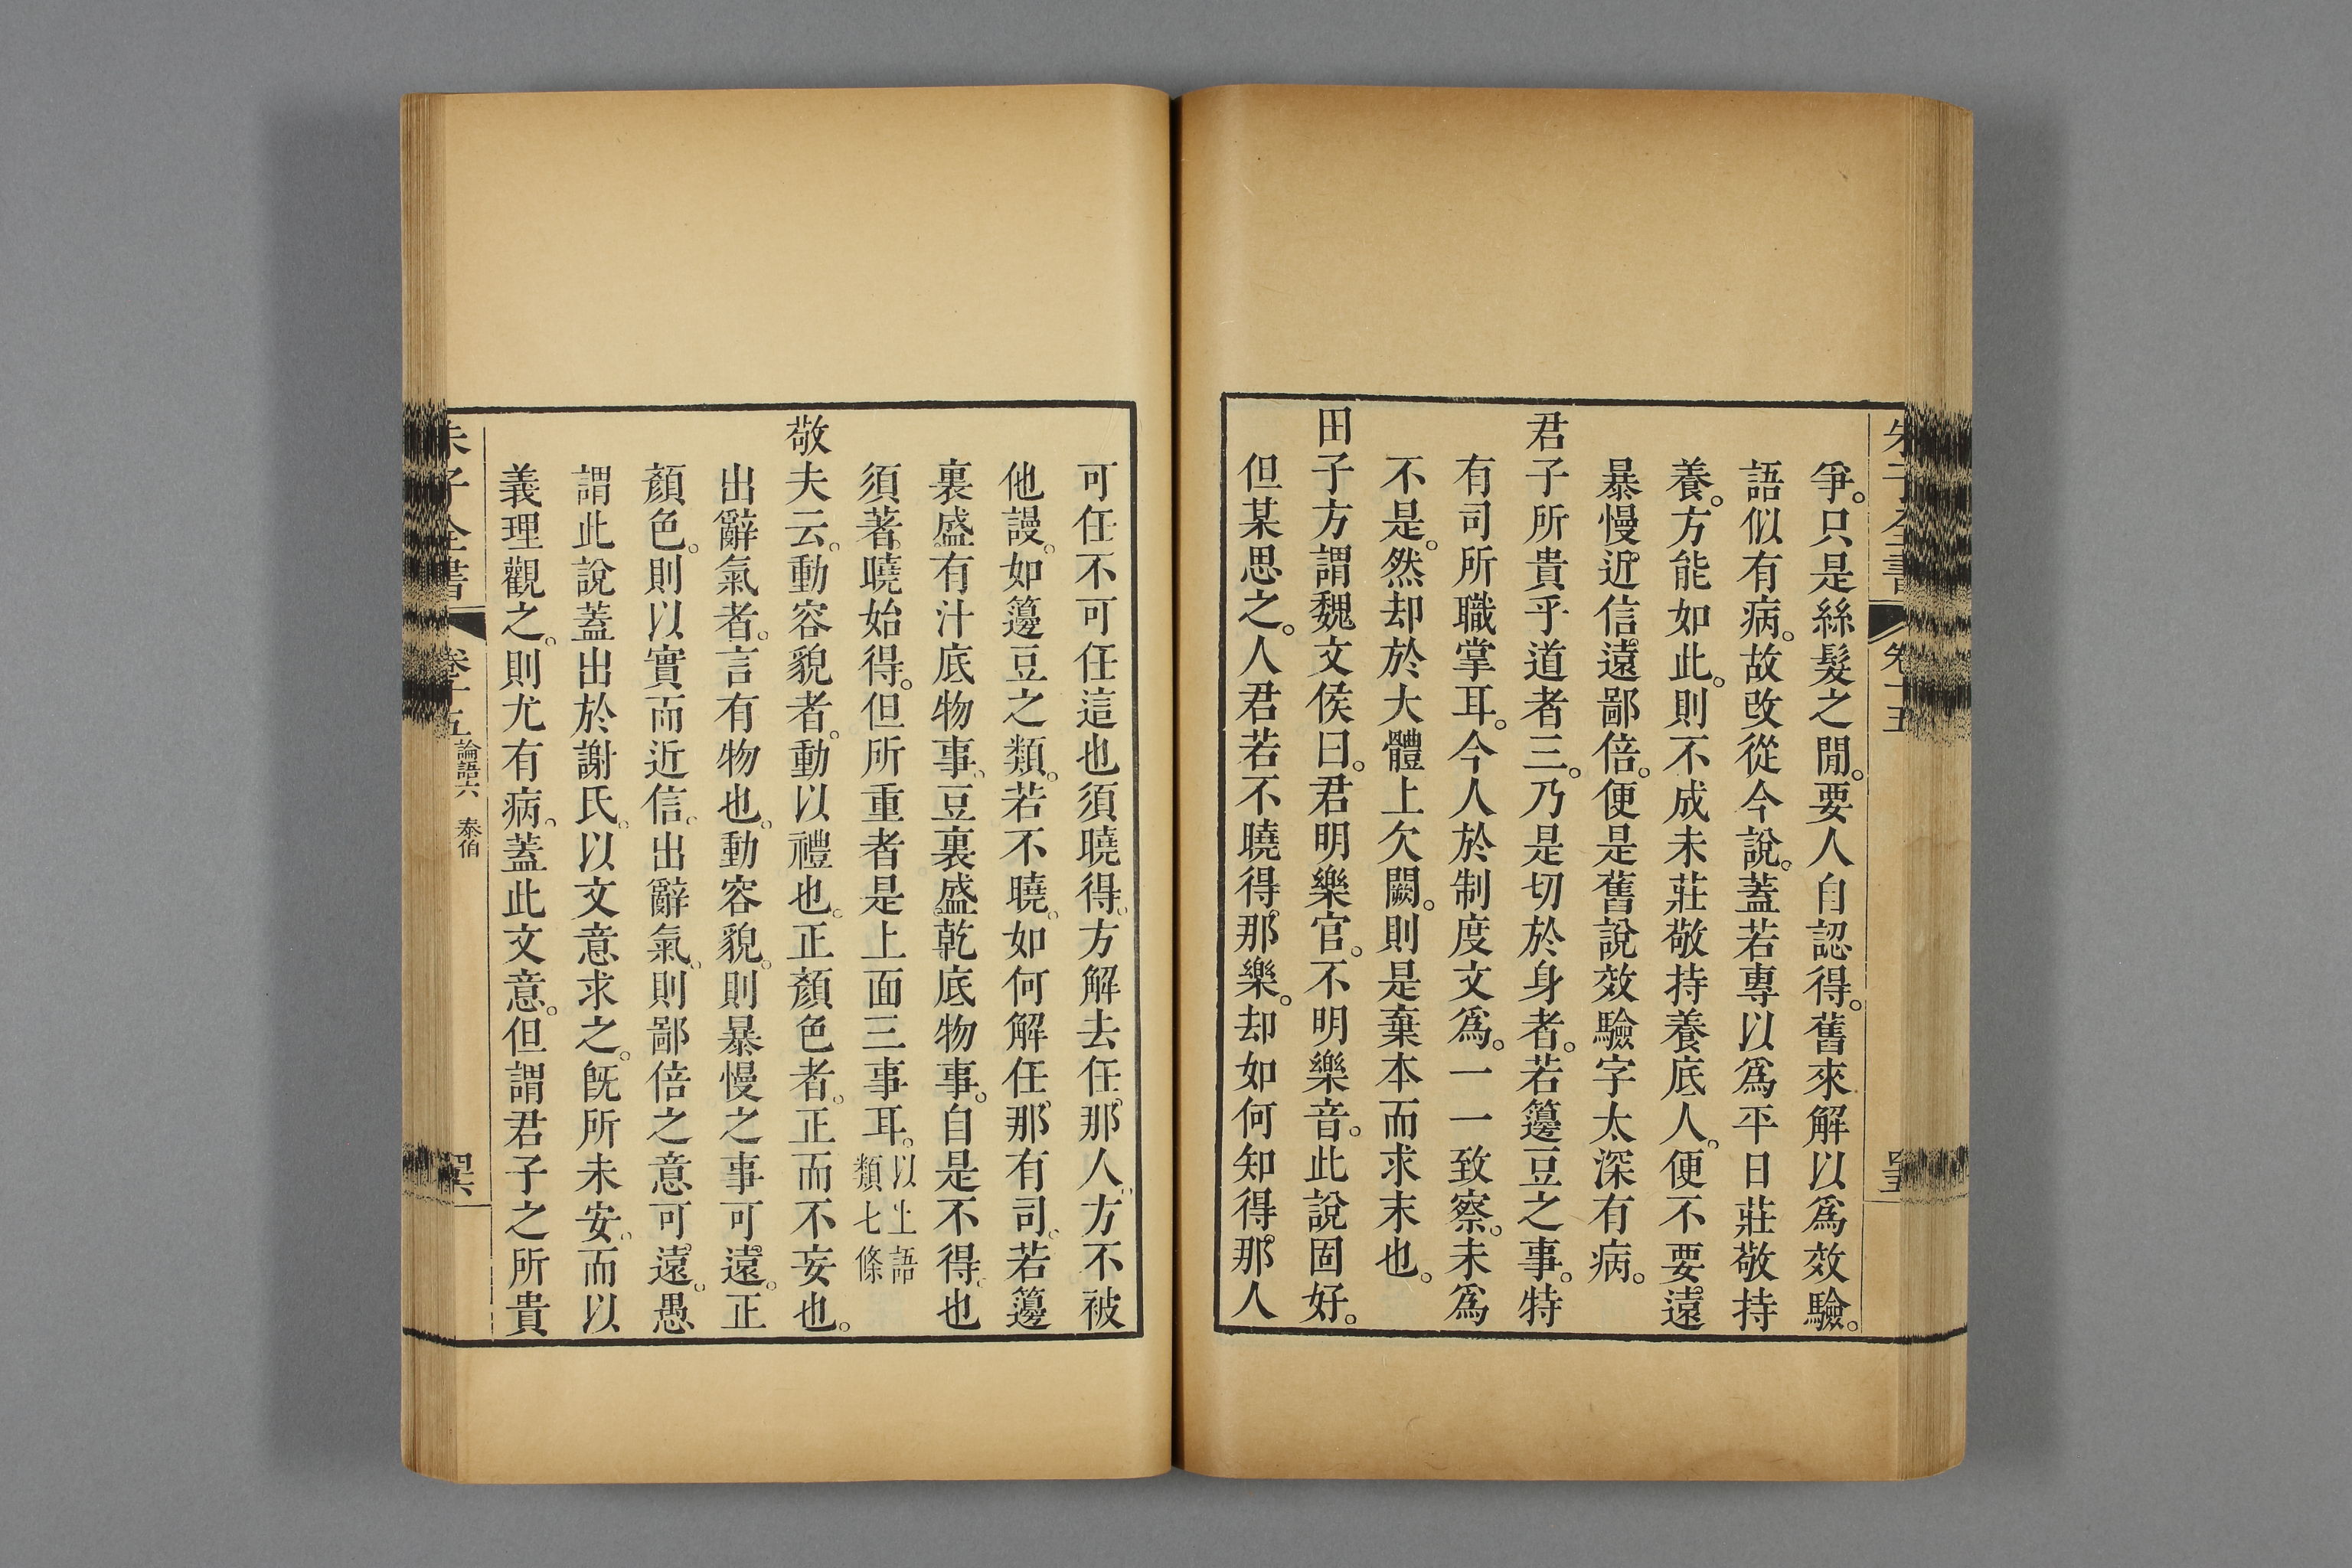 爭。只是絲髮之閒。要人自認得。舊來解以爲效驗。
語似有病。故改從今說。蓋若專以爲平日莊敬持
養。方能如此。則不成未莊敬持養底人。便不要遠
暴慢。近信。遠鄙倍。便是舊說效驗字太深有病。
君子所貴乎道者三。乃是切於身者。若籩豆之事。特
有司所職掌耳。今人於制度文爲。一一致察。未爲
不是。然却於大體上欠闕。則是棄本而求末也。
田子方謂魏文侯曰。君明樂官。不明樂音。此說固好。
但某思之。人君若不曉得那樂。却如何知得那人
可任不可任這也須曉得。方解去任那人。方不被
他謾。如籩豆之類。若不曉。如何解任那有司。若籩
裏盛有汁底物事。豆裏盛乾底物事。自是不得。也
須著曉始得。但所重者是上面三事耳。以上語類七條
敬夫云。動容貌者。動以禮也。正顏色者。正而不妄也。
出辭氣者。言有物也。動容貌。則暴慢之事可遠。正
顏色。則以實而近信。出辭氣。則鄙倍之意可遠。愚
謂此說蓋出於謝氏。以文意求之。旣所未安。而以
義理觀之。則尤有病。蓋此文意。但謂君子之所貴
朱子全書 卷十五 論語六 泰伯